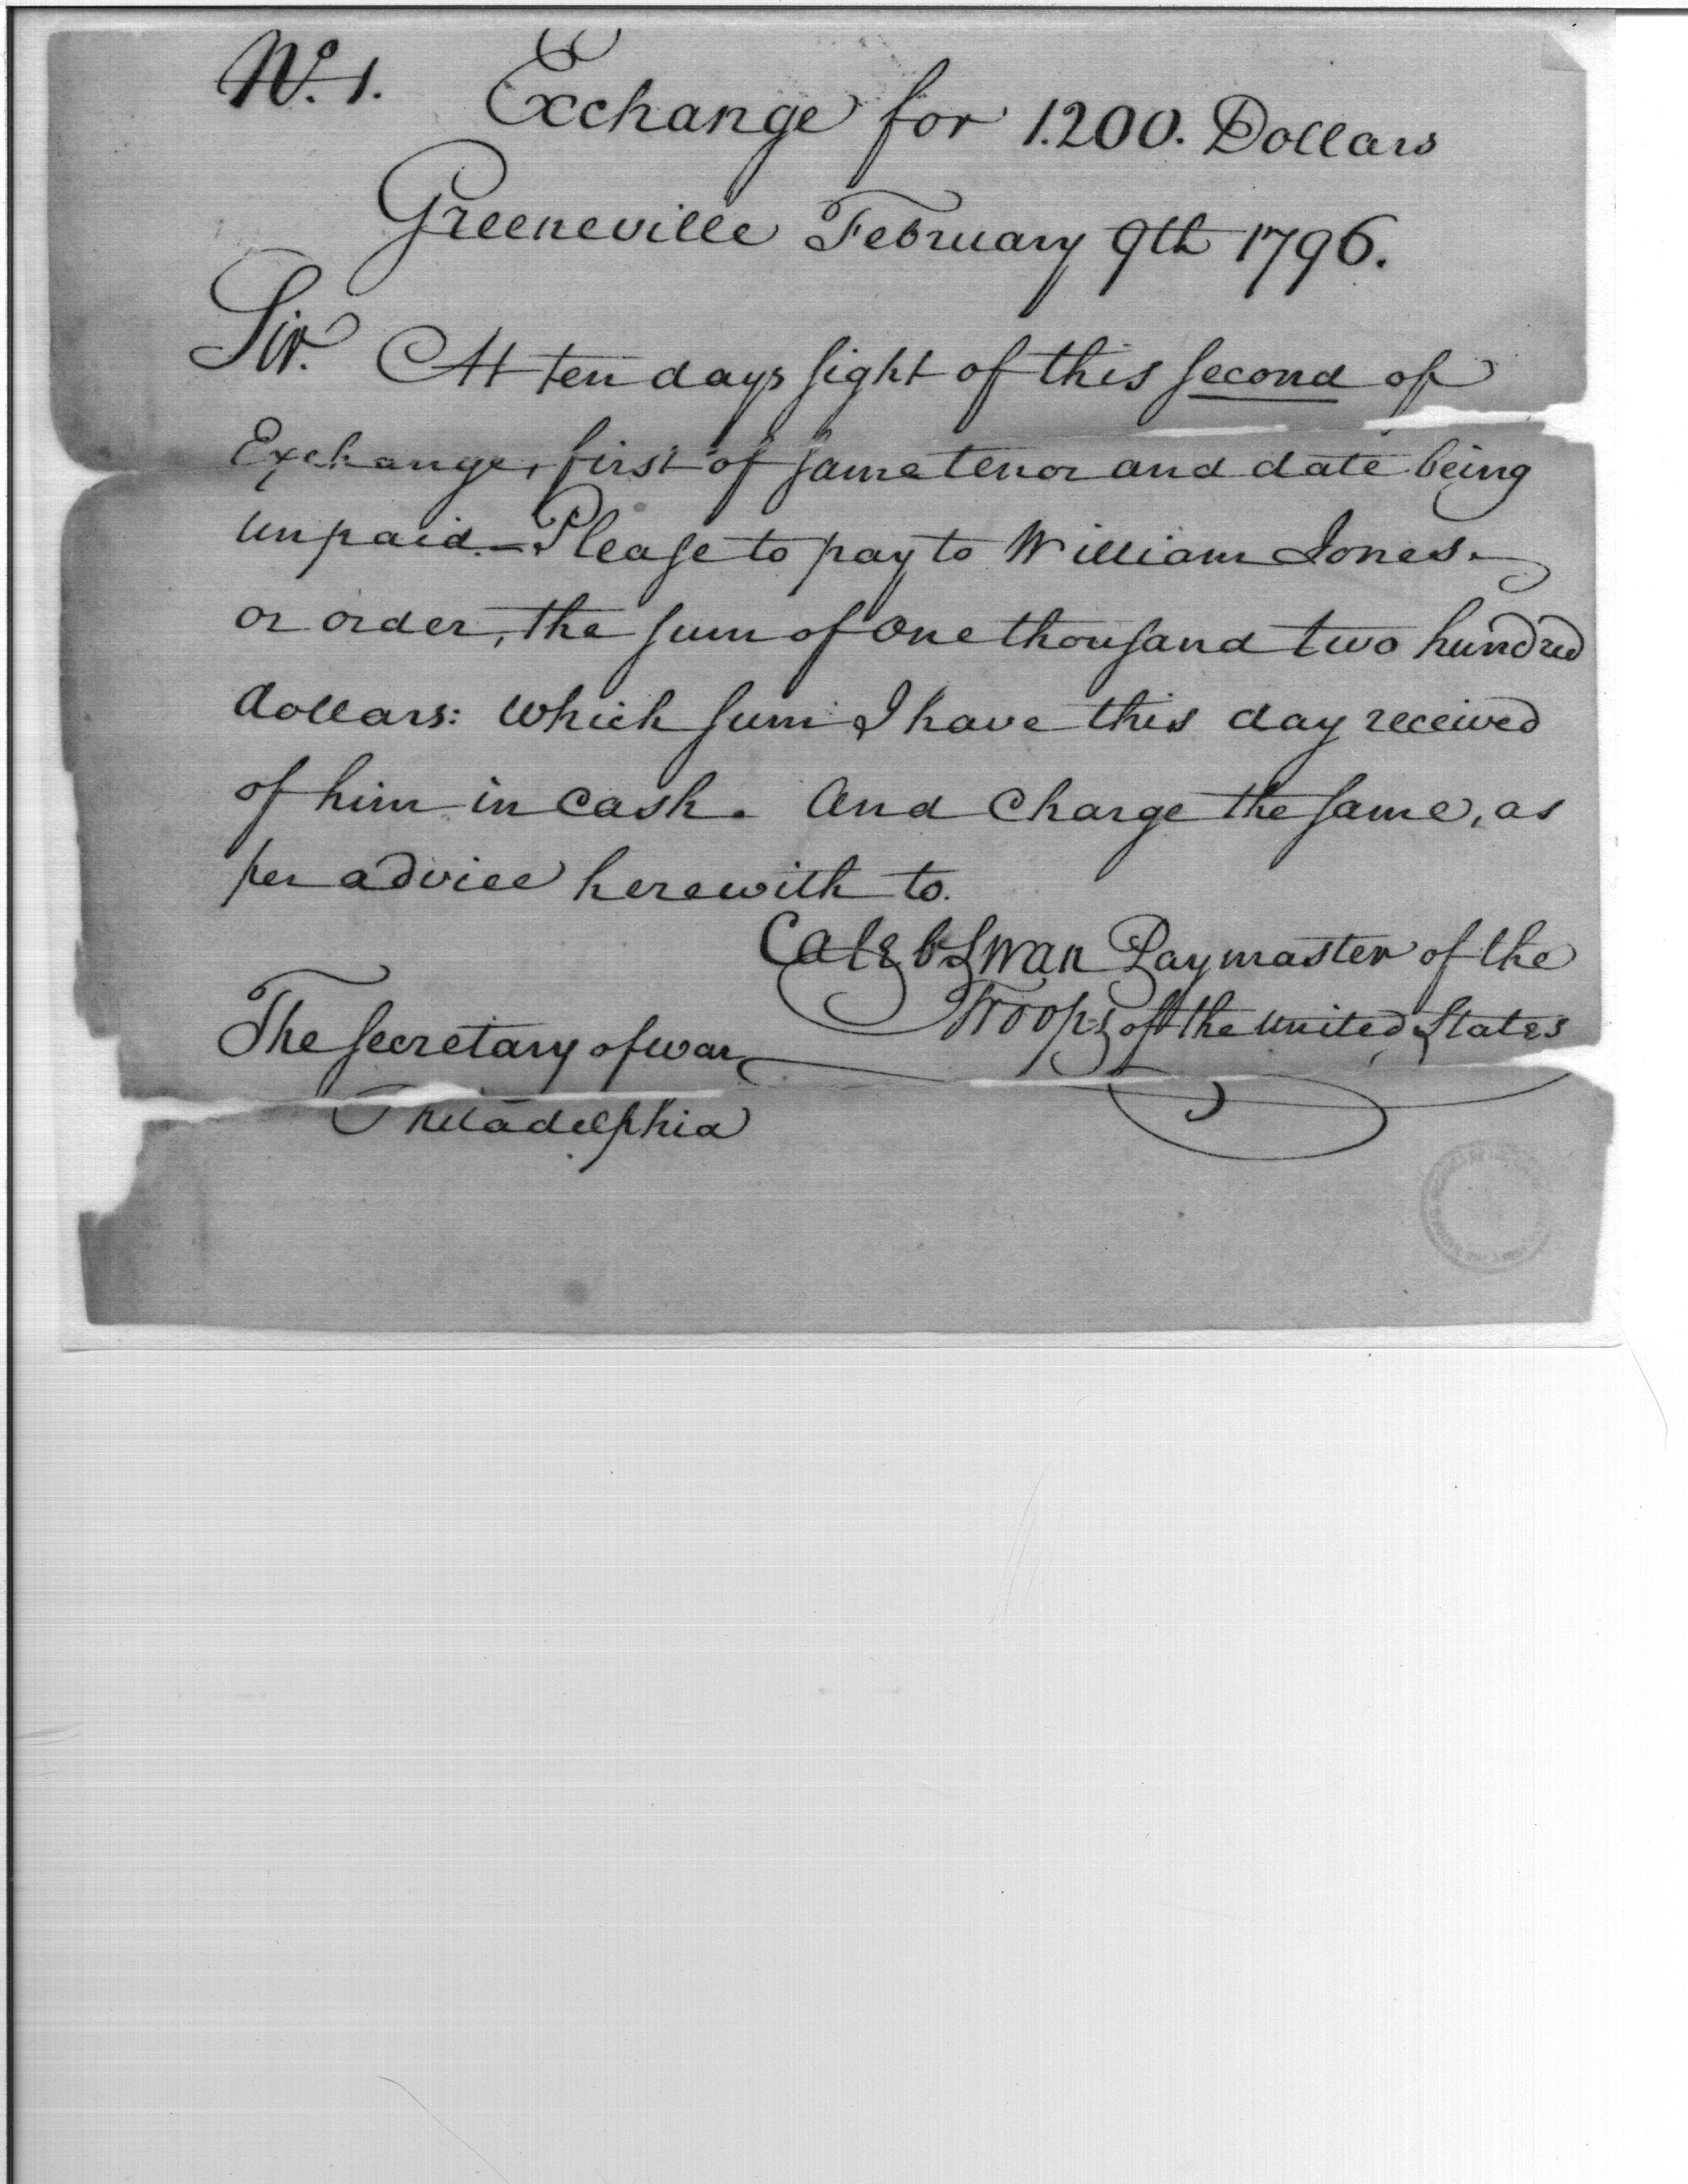 No. 1. Exchange for 1.200. Dollars
Greeneville February 9th 1796.
Sir. At ten days sight of this second of
Exchange, first of same tenor and date being
unpaid.—Please to pay to William Jones.
or order, the sum of One thousand two hundred
dollars: which sum I have this day received
of him in Cash. And Charge the same, as
per advice herewith to.
Caleb Swan Paymaster of the
Troops of the united States
The Secretary of war
Philadelphia